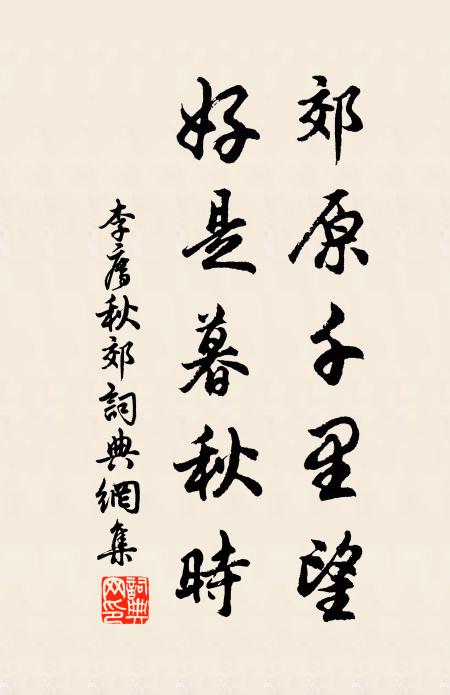 郊原千里望
好是暮秋時
李廌秋郊詞典網集
詞典网印